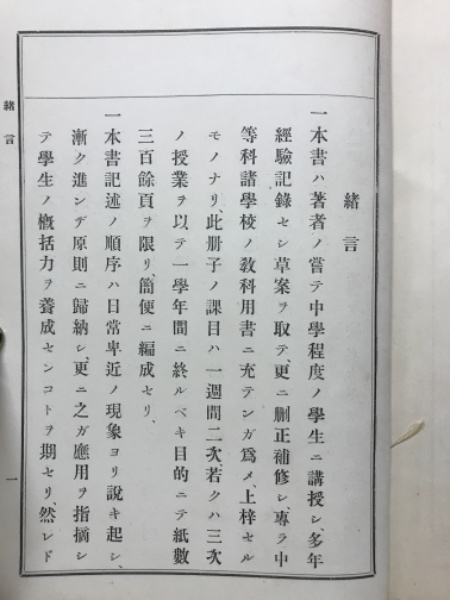 緒言
一本書ハ著者ノ嘗テ中學程度ノ學生ニ講授シ、多年
經驗記錄セシ草案ヲ取テ、更ニ刪正補修シ、專ラ中
等科諸學校ノ敎科用書ニ充テンガ爲メ、上梓セル
モノナリ、此册子ノ課目ハ一週間二次、若クハ三次
ノ授業ヲ以テ一學年間ニ終ルベキ目的ニテ紙數
三百餘頁ヲ限リ、簡便ニ編成セリ、
一本書記述ノ順序ハ日常卑近ノ現象ヨリ說キ起シ、
漸ク進ンデ原則ニ歸納シ、更ニ之ガ應用ヲ指摘シ
テ學生ノ槪括力ヲ養成センコトヲ期セリ、然レド
緒言
一